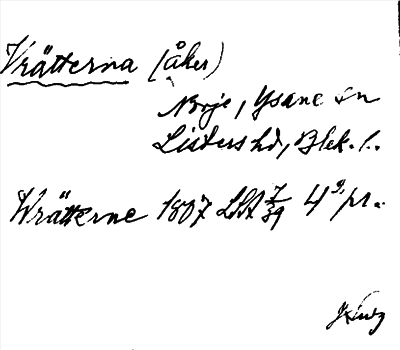 Vrätterna (åker)
Norje, Ysane sn
Listers hd, Blek. l.
Wrätterne 1807 LSA 7/39 4º, pr.